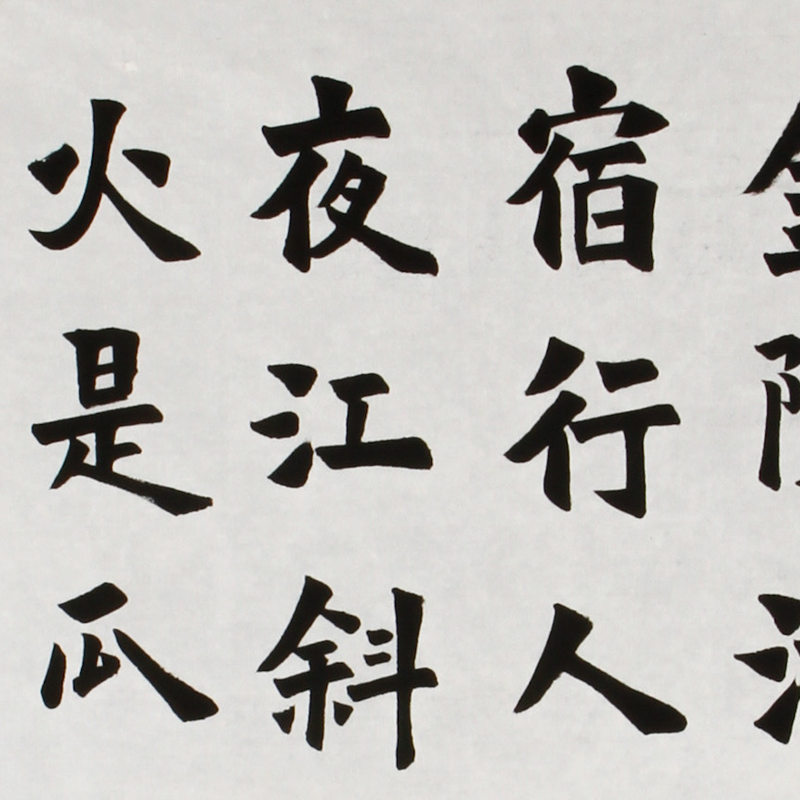 宿行人
夜江斜
火是瓜